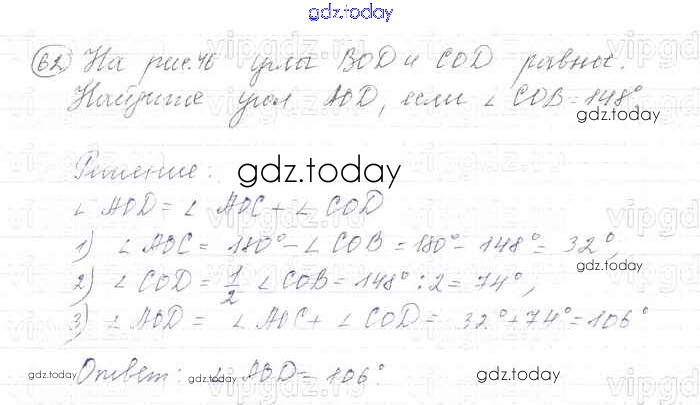 gdz.today
62 На рис.46 углы BOD и COD равны.
Найдите угол AOD, если ∠ COB = 148°.
gdz.today
Решение:
gdz.today
∠ AOD = ∠ AOC + ∠ COD
1) ∠ AOC = 180° - ∠ COB = 180° - 148° = 32°,
gdz.today
2) ∠ COD = 1/2 ∠ COB = 148° : 2 = 74°,
3) ∠ AOD = ∠ AOC + ∠ COD = 32° + 74° = 106°
Ответ: ∠ AOD = 106°.
gdz.today
gdz.today
gdz.today